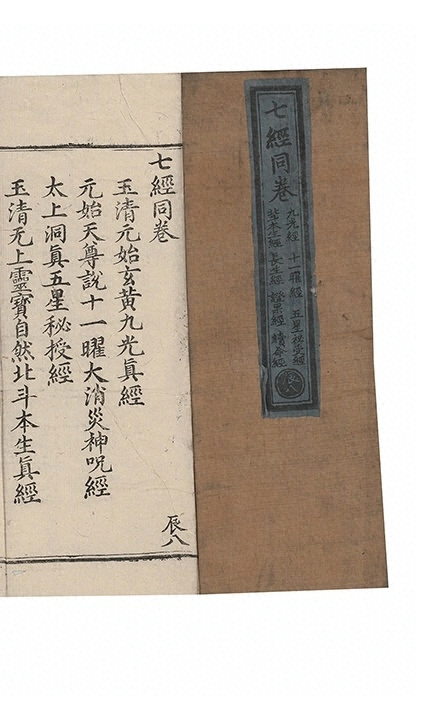 七經同卷
九光經 十一曜經 五星祕受經
本生經 長生經 證果經 續命經
辰八
七經同卷
玉清元始玄黃九光眞經
元始天尊說十一曜大消災神呪經
太上洞眞五星秘授經
玉清无上靈寶自然北斗本生眞經